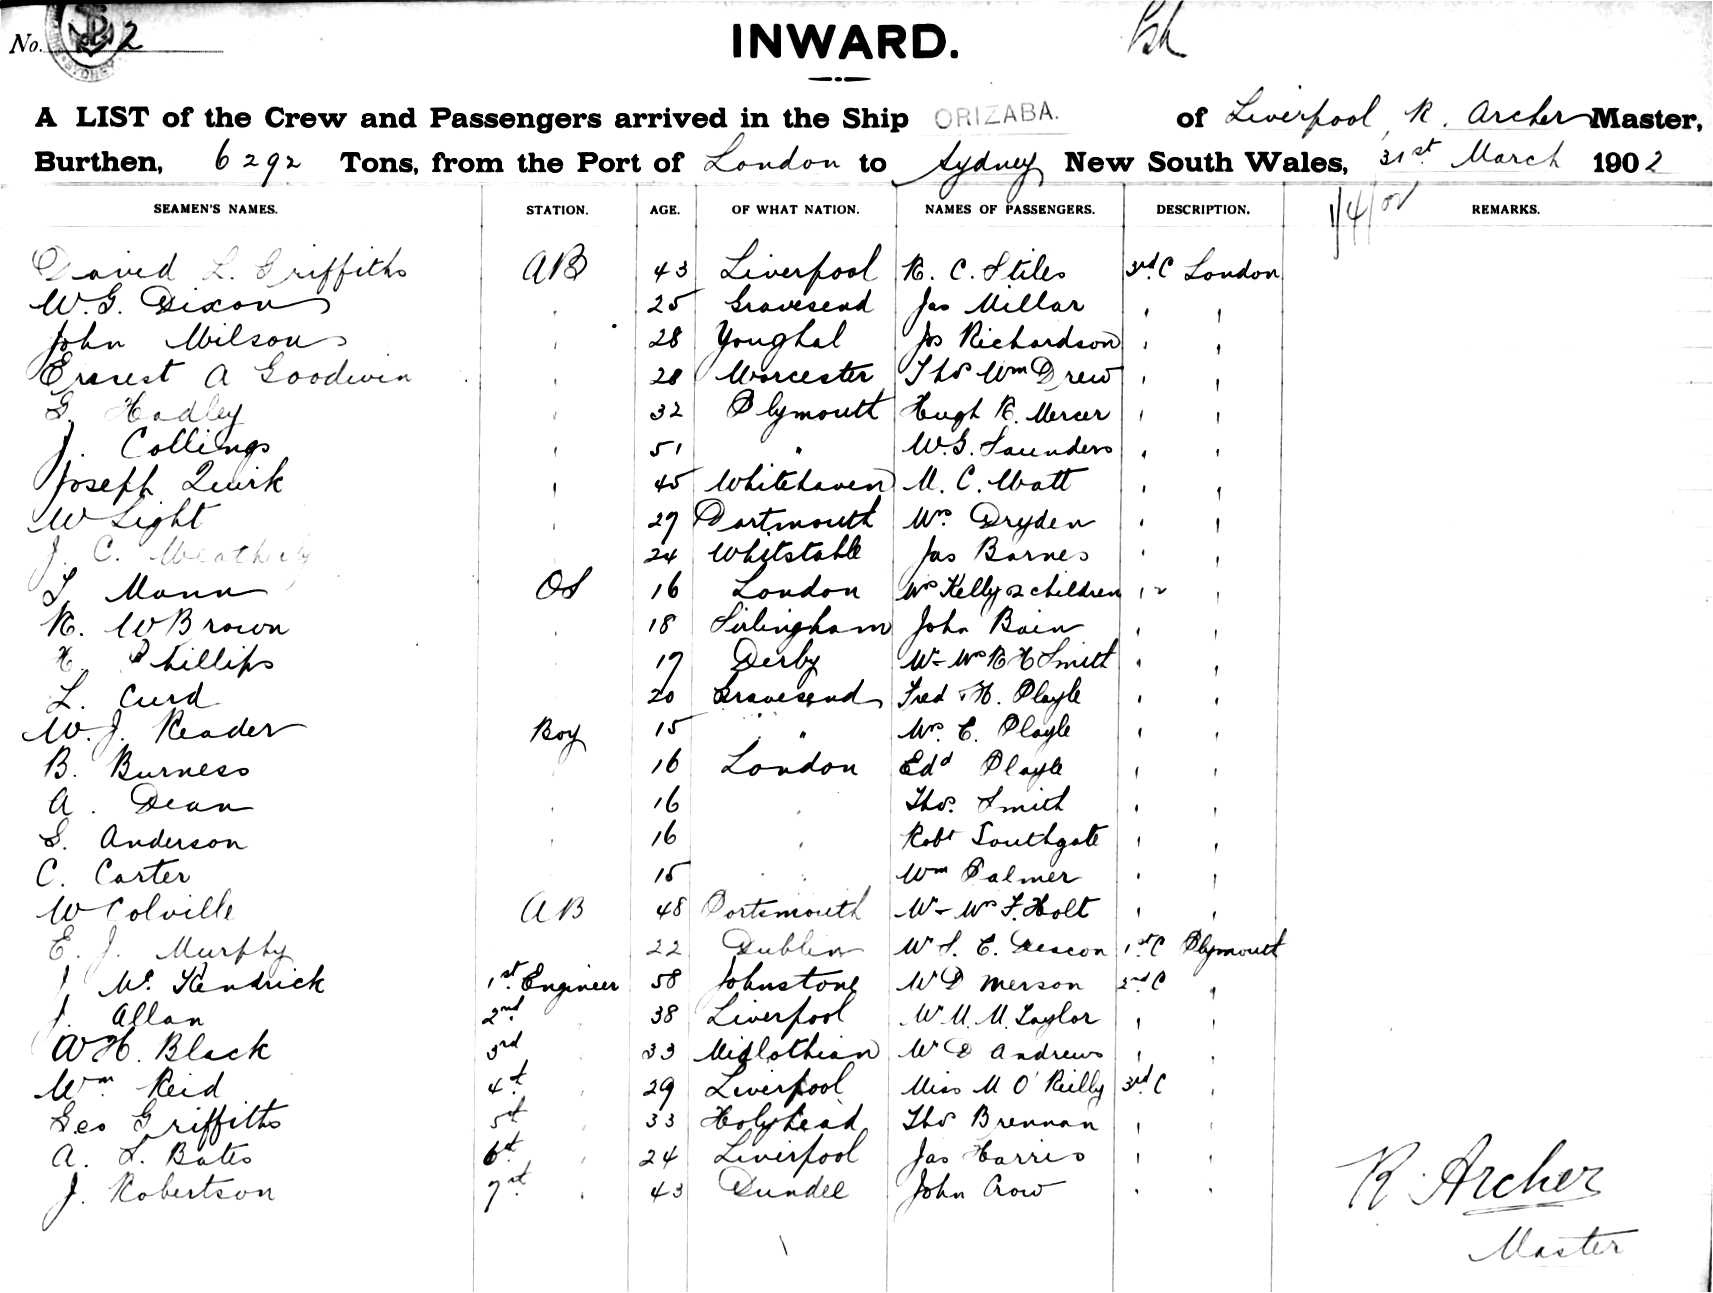 No. 2
INWARD.
A LIST of the Crew and Passengers arrived in the Ship ORIZABA. of Liverpool, R. Archer Master,
Burthen, 6292 Tons, from the Port of London to Sydney New South Wales, 31st March 1902
SEAMEN'S NAMES. STATION. AGE. OF WHAT NATION. NAMES OF PASSENGERS. DESCRIPTION. REMARKS.
1/4/02
David L. Griffiths AB 43 Liverpool R. C. Stiles 3rd C London
W. G. Dixon " 25 Gravesend Jas Millar " "
John Wilson " 28 Youghal Jos Richardson " "
Ernest A Goodwin " 28 Worcester Thos Wm Drew " "
G. Hadley " 32 Plymouth Hugh R. Mercer " "
J. Collings " 51 " W. G. Saunders " "
Joseph Quirk " 45 Whitehaven M. C. Watt " "
W Light " 27 Dartmouth Mrs Dryden " "
J. C. Weatherly " 24 Whitstable Jas Barnes " "
T Mann OS 16 London Mrs Kelly 2 children " "
R. W Brown " 18 John Bain " "
H. Phillips " 17 Derby Mr Mrs R H Smith " "
L. Curd " 20 Gravesend Fred H. Playle " "
W. J. Reader Boy 15 " Mrs E. Playle " "
B. Burness " 16 London Edd Playle " "
A. Dean " 16 " Thos. Smith " "
S. Anderson " 16 " Robt Southgate " "
C. Carter " 15 " Wm Palmer " "
W Colville AB 48 Portsmouth Mr Mrs F. Holt " "
E. J. Murphy 22 Dublin Mr S. E. Deacon 1st C Plymouth
J McKendrick 1st Engineer 58 Johnstone Mr D Merson 2nd C "
J. Allan 2nd " 38 Liverpool Mr M. M. Taylor " "
W H. Black 3rd " 33 Midlothian Mr D Andrews " "
Wm Reid 4t " 29 Liverpool Miss M O'Reilly 3rd C "
Geo Griffiths 5t " 33 Holyhead Thos Brennan " "
A. L. Bates 6t " 24 Liverpool Jas Harris " "
J. Robertson 7t " 43 Dundee John Crow " "
R. Archer
Master